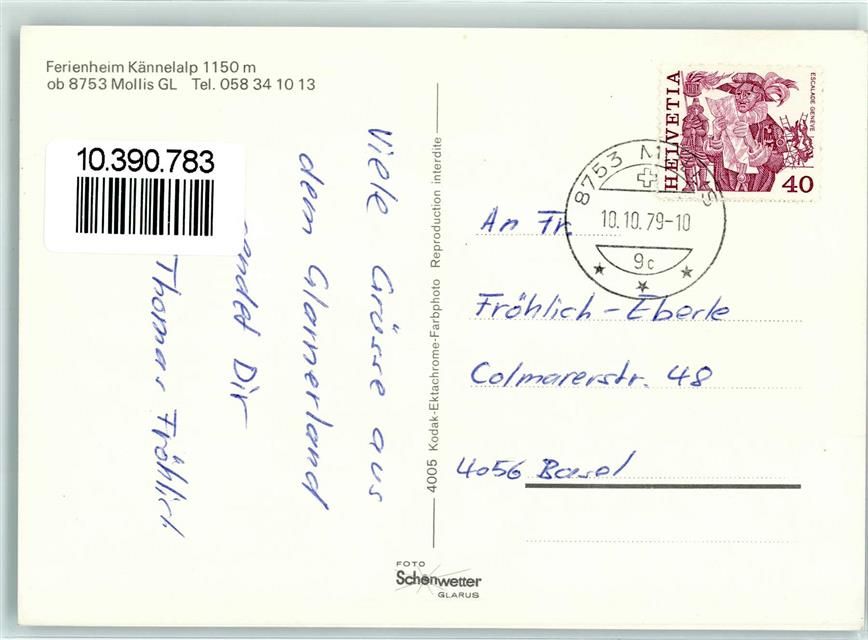 Ferienheim Kännelalp 1150 m
ob 8753 Mollis GL Tel. 058 34 10 13
10.390.783
Viele Grüsse aus
dem Glarnerland
Dir
Thomas Fröhlich
4005 Kodak-Ektachrome-Farbphoto Reproduction interdite
HELVETIA
ESCALADE GENÈVE
40
8753
10.10.79-10
9c
An Fr.
Fröhlich-Eberle
Colmarerstr. 48
4056 Basel
FOTO
Schönwetter
GLARUS